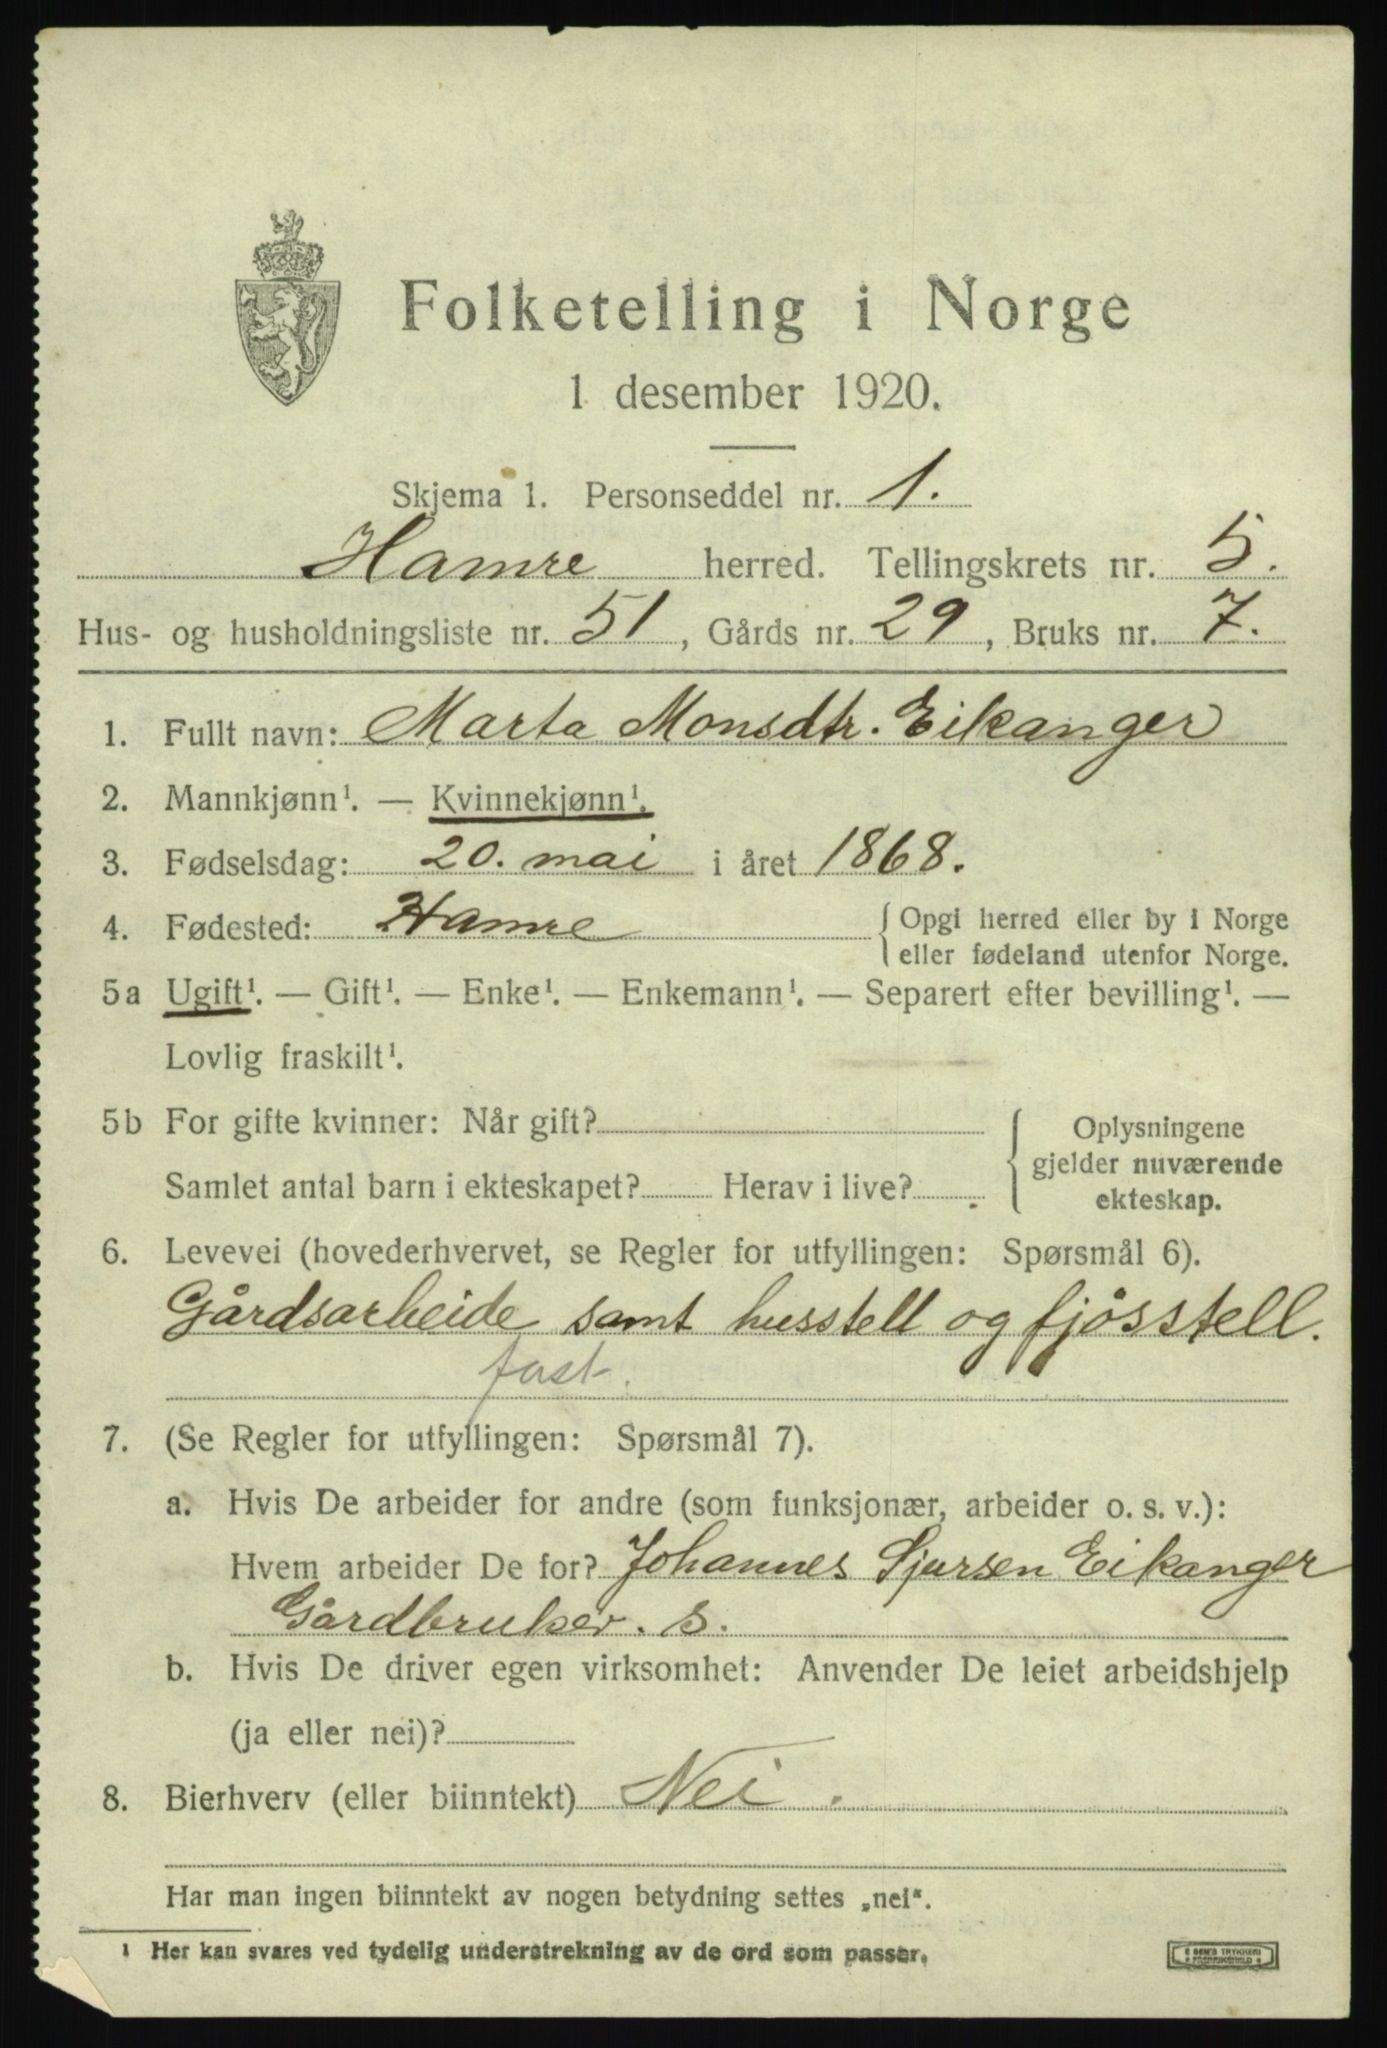 Folketelling i Norge
1 desember 1920.
Skjema 1. Personseddel nr. 1.
Hamre herred. Tellingskrets nr. 5.
Hus- og husholdningsliste nr. 51, Gårds nr. 29, Bruks nr. 7.
1. Fullt navn: Marta Monsdtr. Eikanger
2. Mannkjønn¹. — Kvinnekjønn¹.
3. Fødselsdag: 20. mai i året 1868.
4. Fødested: Hamre { Opgi herred eller by i Norge
eller fødeland utenfor Norge.
5a Ugift¹. — Gift¹. — Enke¹. — Enkemann¹. — Separert efter bevilling¹. —
Lovlig fraskilt¹.
5b For gifte kvinner: Når gift?
Samlet antal barn i ekteskapet? Herav i live?
{ Oplysningene
gjelder nuværende
ekteskap.
6. Levevei (hovederhvervet, se Regler for utfyllingen: Spørsmål 6).
Gårdsarbeide samt husstell og fjøsstell.
fast.
7. (Se Regler for utfyllingen: Spørsmål 7).
a. Hvis De arbeider for andre (som funksjonær, arbeider o. s. v.):
Hvem arbeider De for? Johannes Sjursen Eikanger
Gårdbruker. s.
b. Hvis De driver egen virksomhet: Anvender De leiet arbeidshjelp
(ja eller nei)?
8. Bierhverv (eller biinntekt) Nei.
Har man ingen biinntekt av nogen betydning settes „nei“.
¹ Her kan svares ved tydelig understrekning av de ord som passer.
E SEM'S TRYKKERI
FREDRIKSHALD